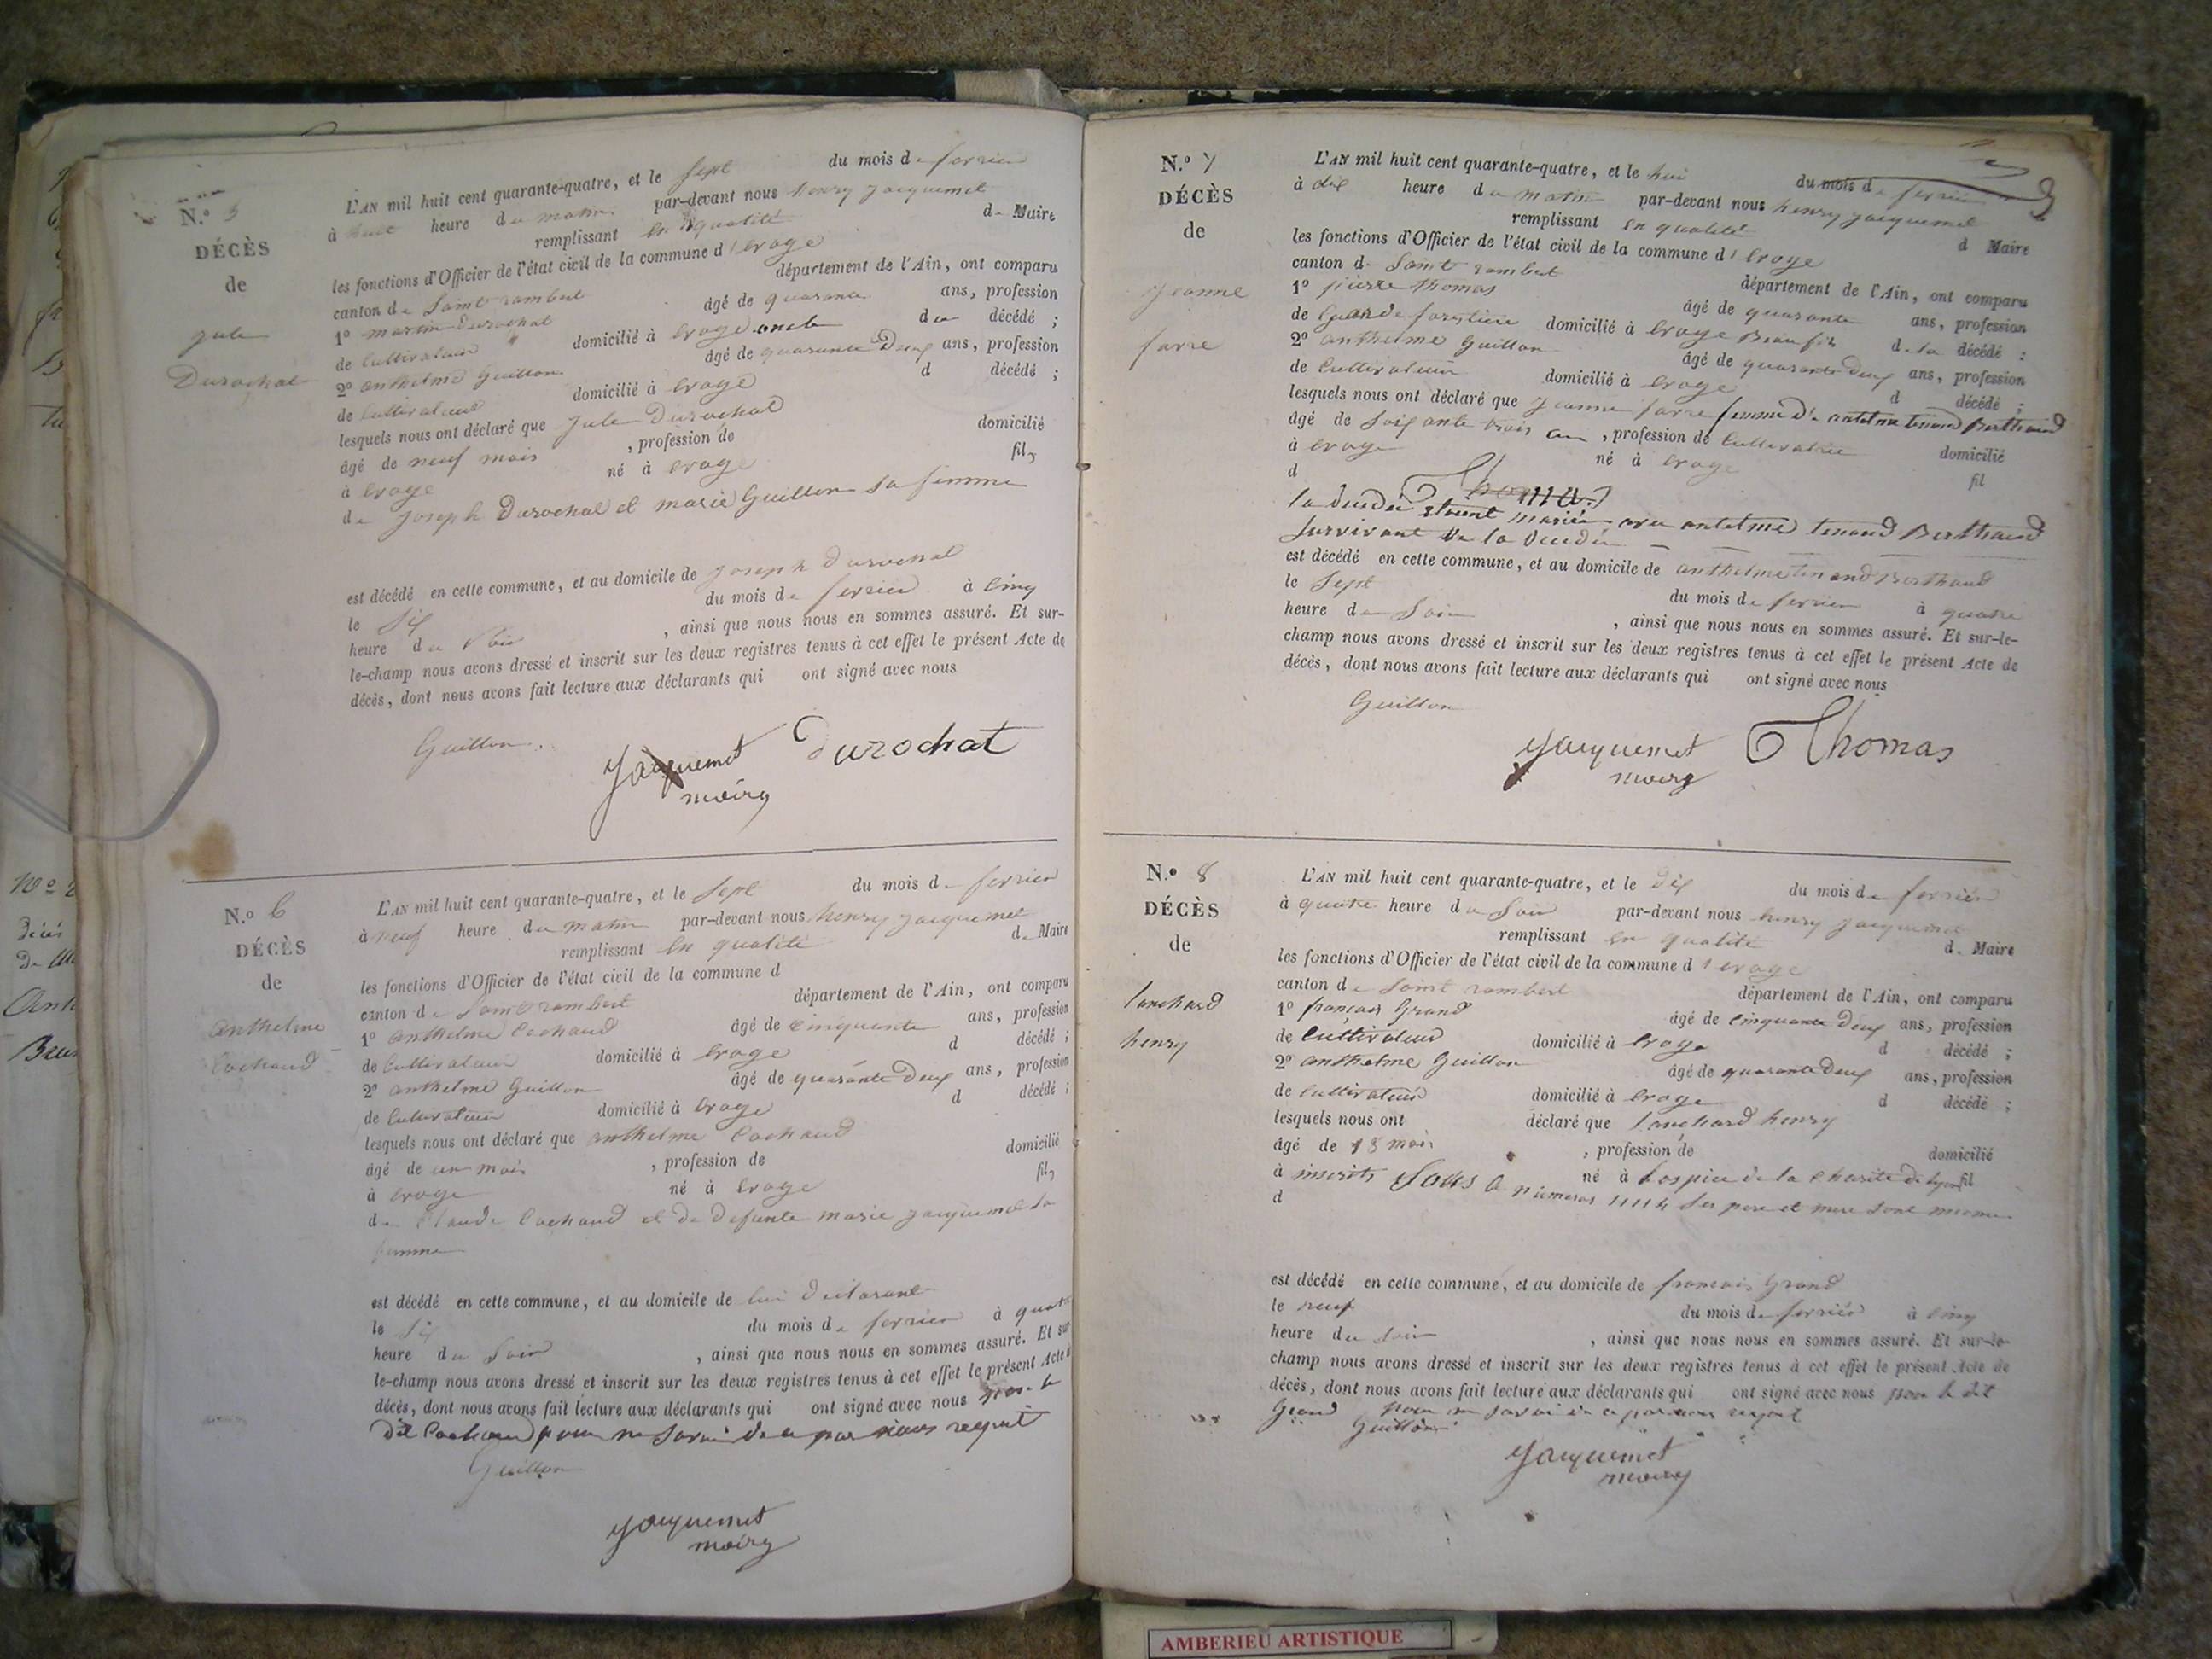 N.º 5
DÉCÈS
de
jule
Durochat
L'AN mil huit cent quarante-quatre, et le sept du mois de fevrier
à huit heure du matin par-devant nous henry jacquemet
remplissant en qualité de Maire
les fonctions d'Officier de l'état civil de la commune d' evoge
canton de Saint rambert département de l'Ain, ont comparu
1º martin durochat âgé de quarante ans, profession
de Cultivateur domicilié à Evoge oncle du décédé ;
2º anthelme Guillon âgé de quarante Deux ans, profession
de Cultivateur domicilié à Evoge d décédé ;
lesquels nous ont déclaré que jule Durochat
âgé de neuf mois , profession de domicilié
à Evoge né à Evoge fils
de Joseph Durochat et marie Guillon sa femme
est décédé en cette commune, et au domicile de joseph Durochat
le Six du mois de fevrier à Cinq
heure du soir , ainsi que nous nous en sommes assuré. Et sur-
le-champ nous avons dressé et inscrit sur les deux registres tenus à cet effet le présent Acte de
décès, dont nous avons fait lecture aux déclarants qui ont signé avec nous
Guillon
Jacquemet Durochat
maire
N.º 6
DÉCÈS
de
anthelme
Cochaud
L'AN mil huit cent quarante-quatre, et le Sept du mois de fevrier
à neuf heure du matin par-devant nous henry jacquemet
remplissant en qualité de Maire
les fonctions d'Officier de l'état civil de la commune d
canton de Saint rambert département de l'Ain, ont comparu
1º anthelme Cochaud âgé de Cinquante ans, profession
de Cultivateur domicilié à Evoge d décédé ;
2º anthelme Guillon âgé de quarante Deux ans, profession
de Cultivateur domicilié à Evoge d décédé ;
lesquels nous ont déclaré que anthelme Cochaud
âgé de un mois , profession de domicilié
à Evoge né à Evoge fils
de Claude Cochaud et de defunte marie jacquemet sa
femme
est décédé en cette commune, et au domicile de lui Declarant
le Six du mois de fevrier à quatre
heure du Soir , ainsi que nous nous en sommes assuré. Et sur
le-champ nous avons dressé et inscrit sur les deux registres tenus à cet effet le présent Acte
décès, dont nous avons fait lecture aux déclarants qui ont signé avec nous non le
dit Cochaud pour ne savoir de ce par nous requit
Guillon
Jacquemet
maire
N.º 7
DÉCÈS
de
jeanne
favre
L'AN mil huit cent quarante-quatre, et le hui du mois de fevrier
à dix heure du matin par-devant nous henry jacquemet
remplissant en qualité d Maire
les fonctions d'Officier de l'état civil de la commune d' Evoge
canton de Saint rambert département de l'Ain, ont comparu
1º pierre thomas âgé de quarante ans, profession
de Garde forestier domicilié à Evoge Beau fils de la décédé ;
2º anthelme Guillon âgé de quarante deux ans, profession
de Cultivateur domicilié à Evoge d décédé ;
lesquels nous ont déclaré que jeanne favre femme d'antelme tenand Berthaud
âgé de Soixante trois ans , profession de Cultivatrice domicilié
à Evoge né à Evoge fil
d Thomas
la decedée etoient mariée avec antelme tenand Berthaud
survivant de la decedée
est décédé en cette commune, et au domicile de anthelme tenand Berthaud
le Sept du mois de fevrier à quatre
heure du Soir , ainsi que nous nous en sommes assuré. Et sur-le-
champ nous avons dressé et inscrit sur les deux registres tenus à cet effet le présent Acte de
décès, dont nous avons fait lecture aux déclarants qui ont signé avec nous
Guillon
Jacquemet Thomas
maire
N.º 8
DÉCÈS
de
lanchard
henry
L'AN mil huit cent quarante-quatre, et le Dix du mois de fevrier
à quatre heure du Soir par-devant nous henry jacquemet
remplissant en qualité d. Maire
les fonctions d'Officier de l'état civil de la commune d' evoge
canton de Saint rambert département de l'Ain, ont comparu
1º françois Grand âgé de Cinquante Deux ans, profession
de Cultivateur domicilié à Evoge d décédé ;
2º anthelme Guillon âgé de quarante deux ans, profession
de Cultivateur domicilié à Evoge d décédé ;
lesquels nous ont déclaré que lanchard henry
âgé de 18 mois , profession de domicilié
à inscrits Sous né à hospice de la Charité de lyon fil
d numeros 11114 Ses pere et mere Sont
est décédé en cette commune, et au domicile de francois Grand
le neuf du mois de fevrier à Cinq
heure du Soir , ainsi que nous nous en sommes assuré. Et sur-le-
champ nous avons dressé et inscrit sur les deux registres tenus à cet effet le présent Acte de
décès, dont nous avons fait lecture aux déclarants qui ont signé avec nous non le dit
Grand pour ne savoir de ce par nous requit
Guillon
Jacquemet
maire
AMBERIEU ARTISTIQUE